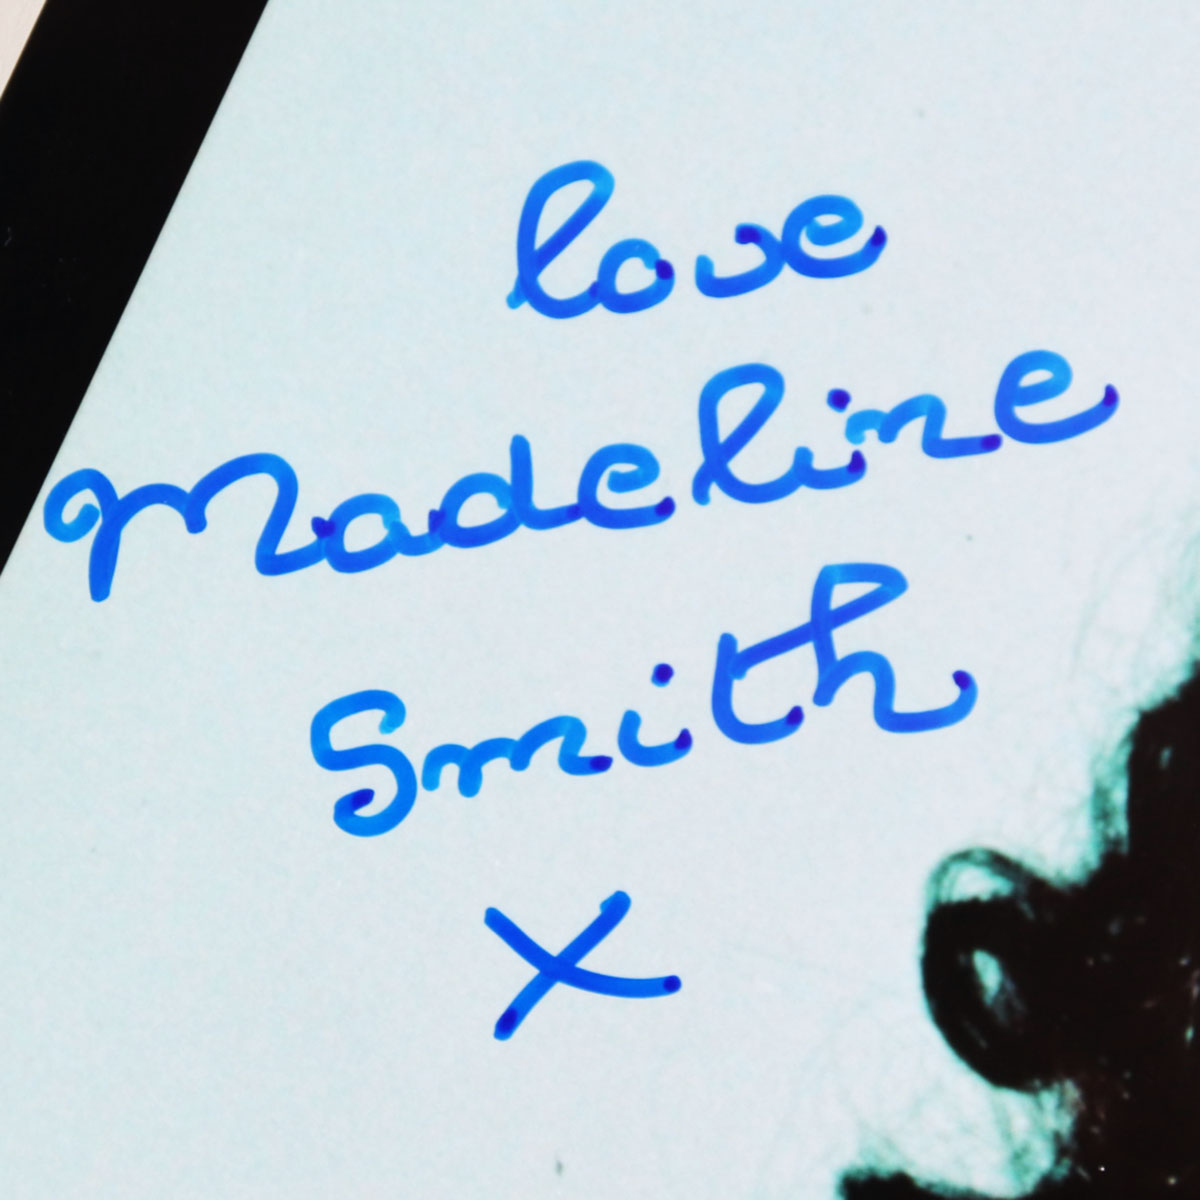 love
Madeline
Smith
X